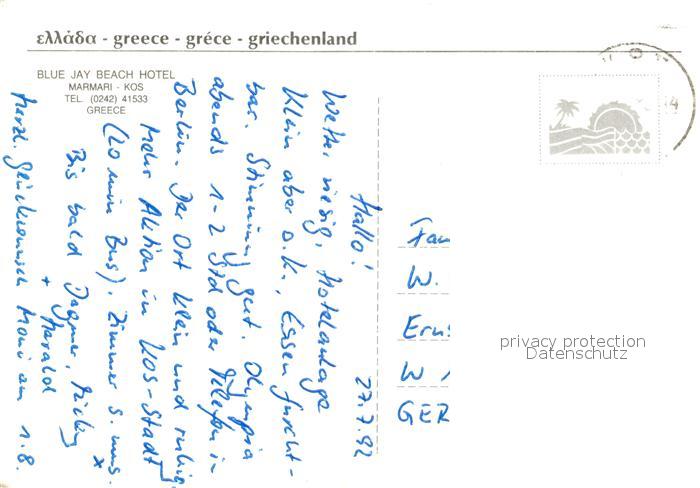 ελλάδα - greece - gréce - griechenland
BLUE JAY BEACH HOTEL
MARMARI - KOS
TEL. (0242) 41533
GREECE
Hallo! 27.7.92
Wetter riesig, Hotelanlage
klein aber o.k., Essen furcht-
bar. Stimmung gut. Olympia
abends 1-2 Std oder Telefon in
Berlin. Der Ort klein und ruhig,
Mehr Aktion in KOS-Stadt
(20 min Bus), Zimmer s.
Bis bald Dagmar,
+ Harald
Herzl. Glückwunsch Moni am 1.8.
Fam
W.
Erns
W
GER
privacy protection
Datenschutz